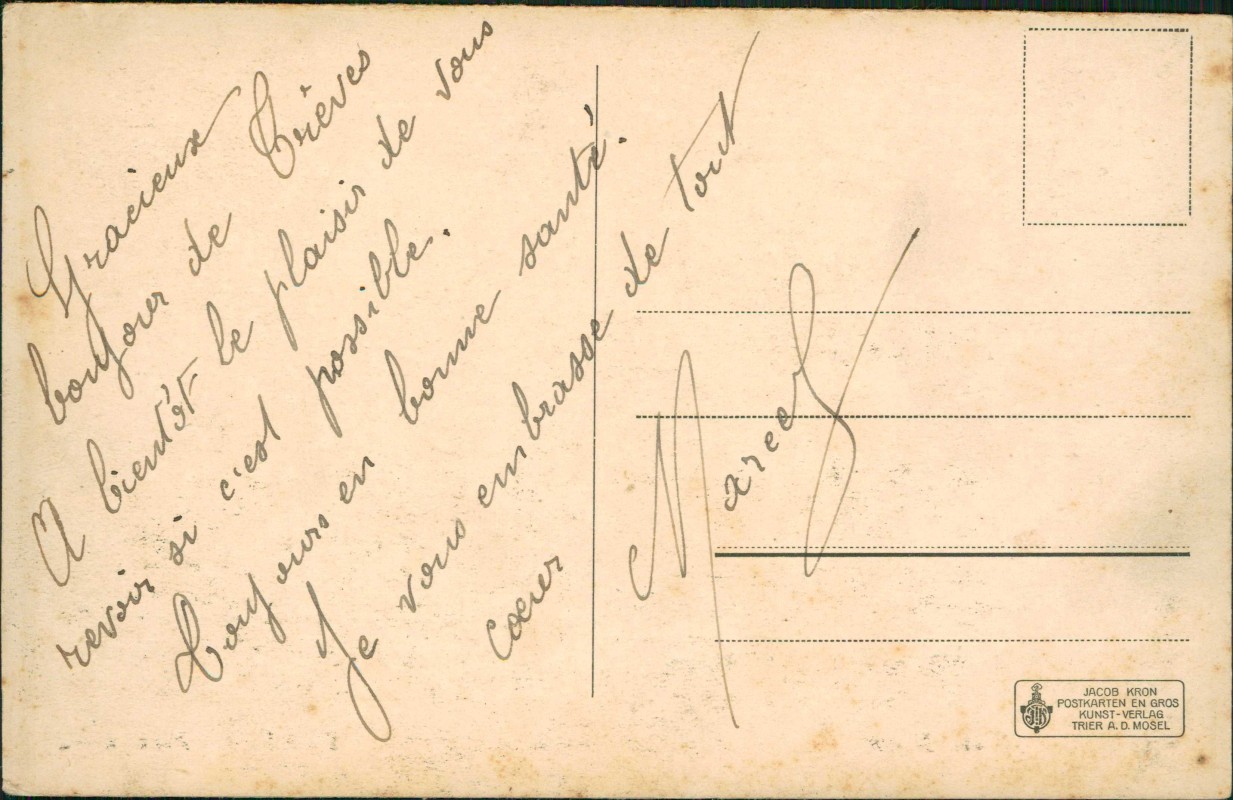 Gracieux
bonjour de Trèves
A bientôt le plaisir de vous
revoir si c'est possible.
Toujours en bonne santé.
Je vous embrasse de tout
coeur
Marcel
JACOB KRON
POSTKARTEN EN GROS
KUNST-VERLAG
TRIER A.D. MOSEL